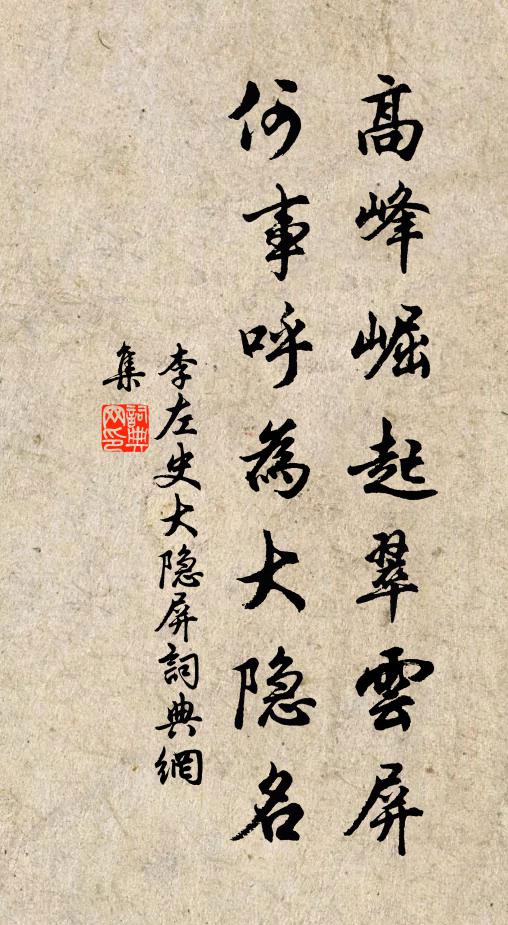 高峰崛起翠雲屏
何事呼為大隐名
李左史大隐屏詞典網
集
詞典网印